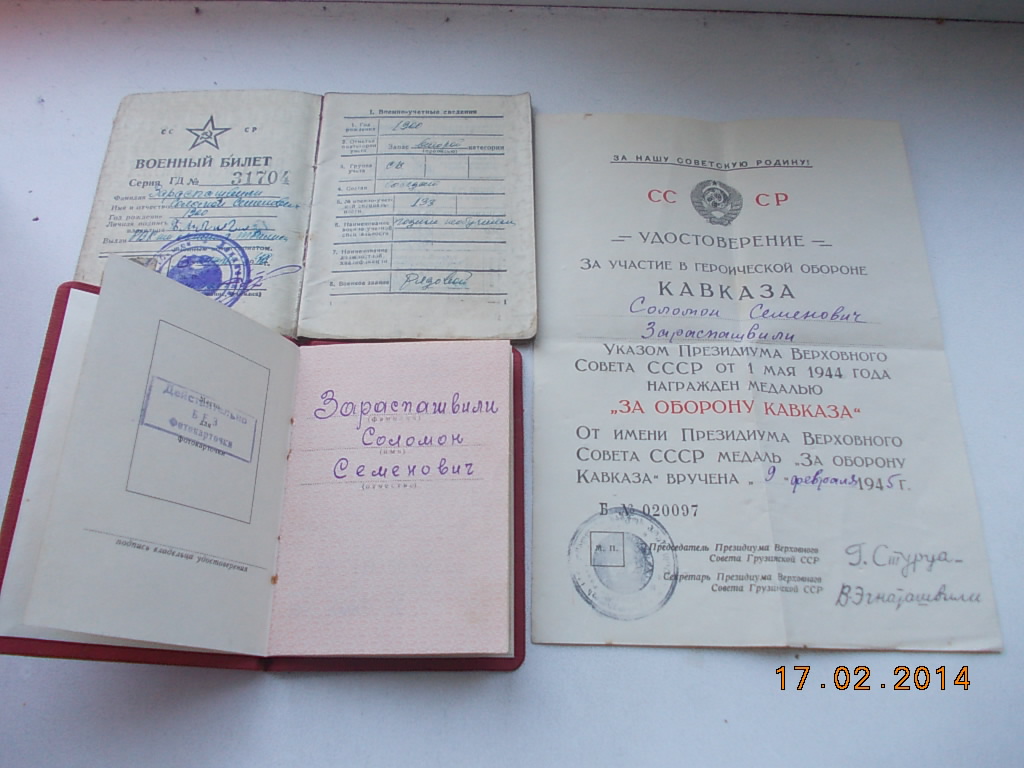 СС СР
ВОЕННЫЙ БИЛЕТ
Серия ГД № 31704
Фамилия Зараспашвили
Имя и отчество Соломон Семенович
Год рождения 1900
Личная подпись
Выдан
I. Военно-учетные сведения
1. Год рождения 1900
2. Запас второй категории
3. Группа учета СА
4. Состав солдат
5. № 133
6. Наименование
7. Наименование
8. Военное звание Рядовой
Действительно
БЕЗ
фотокарточки
фотокарточки
подпись владельца удостоверения
Зараспашвили
(фамилия)
Соломон
(имя)
Семенович
(отчество)
ЗА НАШУ СОВЕТСКУЮ РОДИНУ!
СС СР
— УДОСТОВЕРЕНИЕ —
ЗА УЧАСТИЕ В ГЕРОИЧЕСКОЙ ОБОРОНЕ
КАВКАЗА
Соломон Семенович
Зараспашвили
УКАЗОМ ПРЕЗИДИУМА ВЕРХОВНОГО
СОВЕТА СССР ОТ 1 МАЯ 1944 ГОДА
НАГРАЖДЕН МЕДАЛЬЮ
„ЗА ОБОРОНУ КАВКАЗА“
ОТ ИМЕНИ ПРЕЗИДИУМА ВЕРХОВНОГО
СОВЕТА СССР МЕДАЛЬ „ЗА ОБОРОНУ
КАВКАЗА“ ВРУЧЕНА „9“ февраля 1945 г.
Б № 020097
м. п.
Председатель Президиума Верховного
Совета Грузинской ССР
Г. Стуруа
Секретарь Президиума Верховного
Совета Грузинской ССР
В. Эгнаташвили
17.02.2014